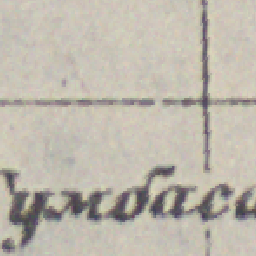 умбаса